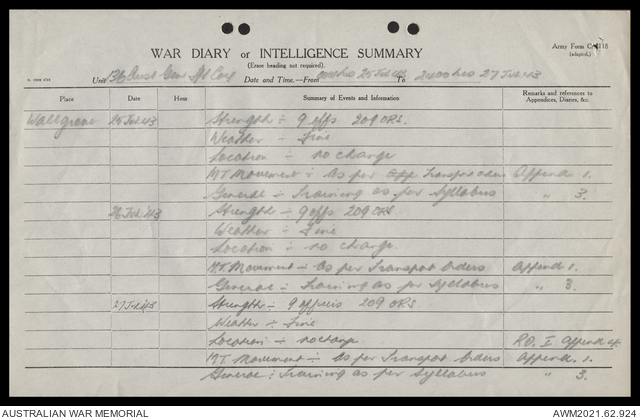 WAR DIARY or INTELLIGENCE SUMMARY
(Erase heading not required).
Army Form C 2118
(adapted.)
Unit 136 Aust Gen Tpt Coy Date and Time.—From 0001hrs 25 Feb 43 To 2400 hrs 27 Feb 43
Place Date Hour Summary of Events and Information Remarks and references to Appendices, Diaries, &c.
Wallgrove 25 Feb 43 Strength :- 9 offs 209 ORS.
Weather :- Fine
Location :- no change
MT Movement :- As per Transport orders Append 1.
General :- Training as per Syllabus " 3.
26 Feb 43 Strength :- 9 offs 209 ORS
Weather :- Fine
Location :- no change.
MT Movement :- As per Transport Orders Append 1.
General :- Training as per Syllabus " 3.
27 Feb 43 Strength :- 9 officers 209 ORS
Weather :- Fine
Location :- no change. RO. Append
MT Movement :- As per Transport Orders Append. 1.
General : Training as per Syllabus " 3.
AUSTRALIAN WAR MEMORIAL AWM2021.62.924